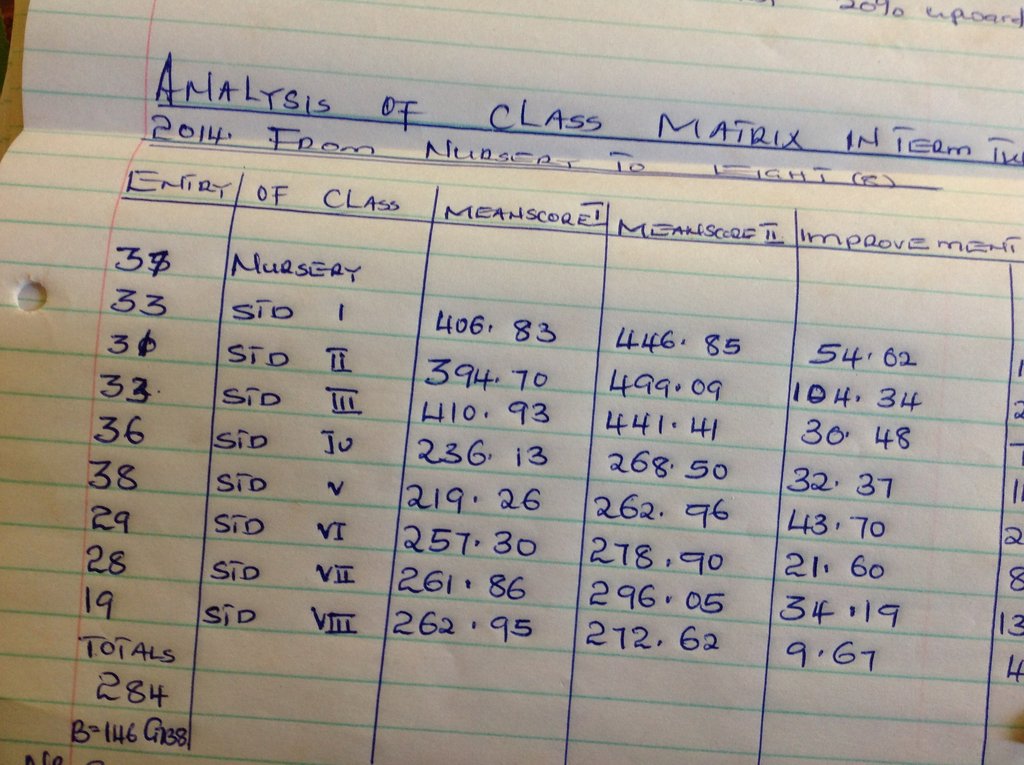 20% upward
ANALYSIS OF CLASS MATRIX IN TERM
2014. FROM NURSERY TO EIGHT (8)
ENTRY OF CLASS MEANSCORE I MEANSCORE II IMPROVEMENT
37 NURSERY
33 STD I 406.83 446.85 54.02
31 STD II 394.70 499.09 104.34
33 STD III 410.93 441.41 30.48
36 STD IV 236.13 268.50 32.37
38 STD V 219.26 262.96 43.70
29 STD VI 257.30 278.90 21.60
28 STD VII 261.86 296.05 34.19
19 STD VIII 262.95 272.62 9.67
TOTALS
284
B=146 G138